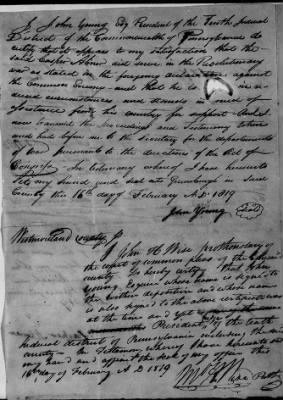 I John Young Esq President of the Tenth Judicial
District of the Commonwealth of Pennsylvania do
certify that it appears to my satisfaction that the
said did serve in the Revolutionary
war as stated in the foregoing declaration against
the Common Enemy and that he is in re
duced circumstances and stands in need of
assistance from his country for support And I
now transmit the proceedings and Testimony taken
and had before me to the Secretary for the department
of war pursuant to the directions of the Act of
Congress In testimony whereof I have hereunto
set my hand and seal at Greensburgh in said
County the 16th day of February A.D. 1819
John Young Seal
Westmoreland County Ss
I John H Wise prothonotary of
the court of common pleas of the said
county Do hereby certify That John
Young Esquire whose name is signed to
the within deposition and whose name
is also signed to the above certificate was
at the time and yet
President of the tenth
Judicial district of Pennsylvania
county In Testimony whereof I have hereunto set
my hand and the seal of my office this
16th day of February A D 1819